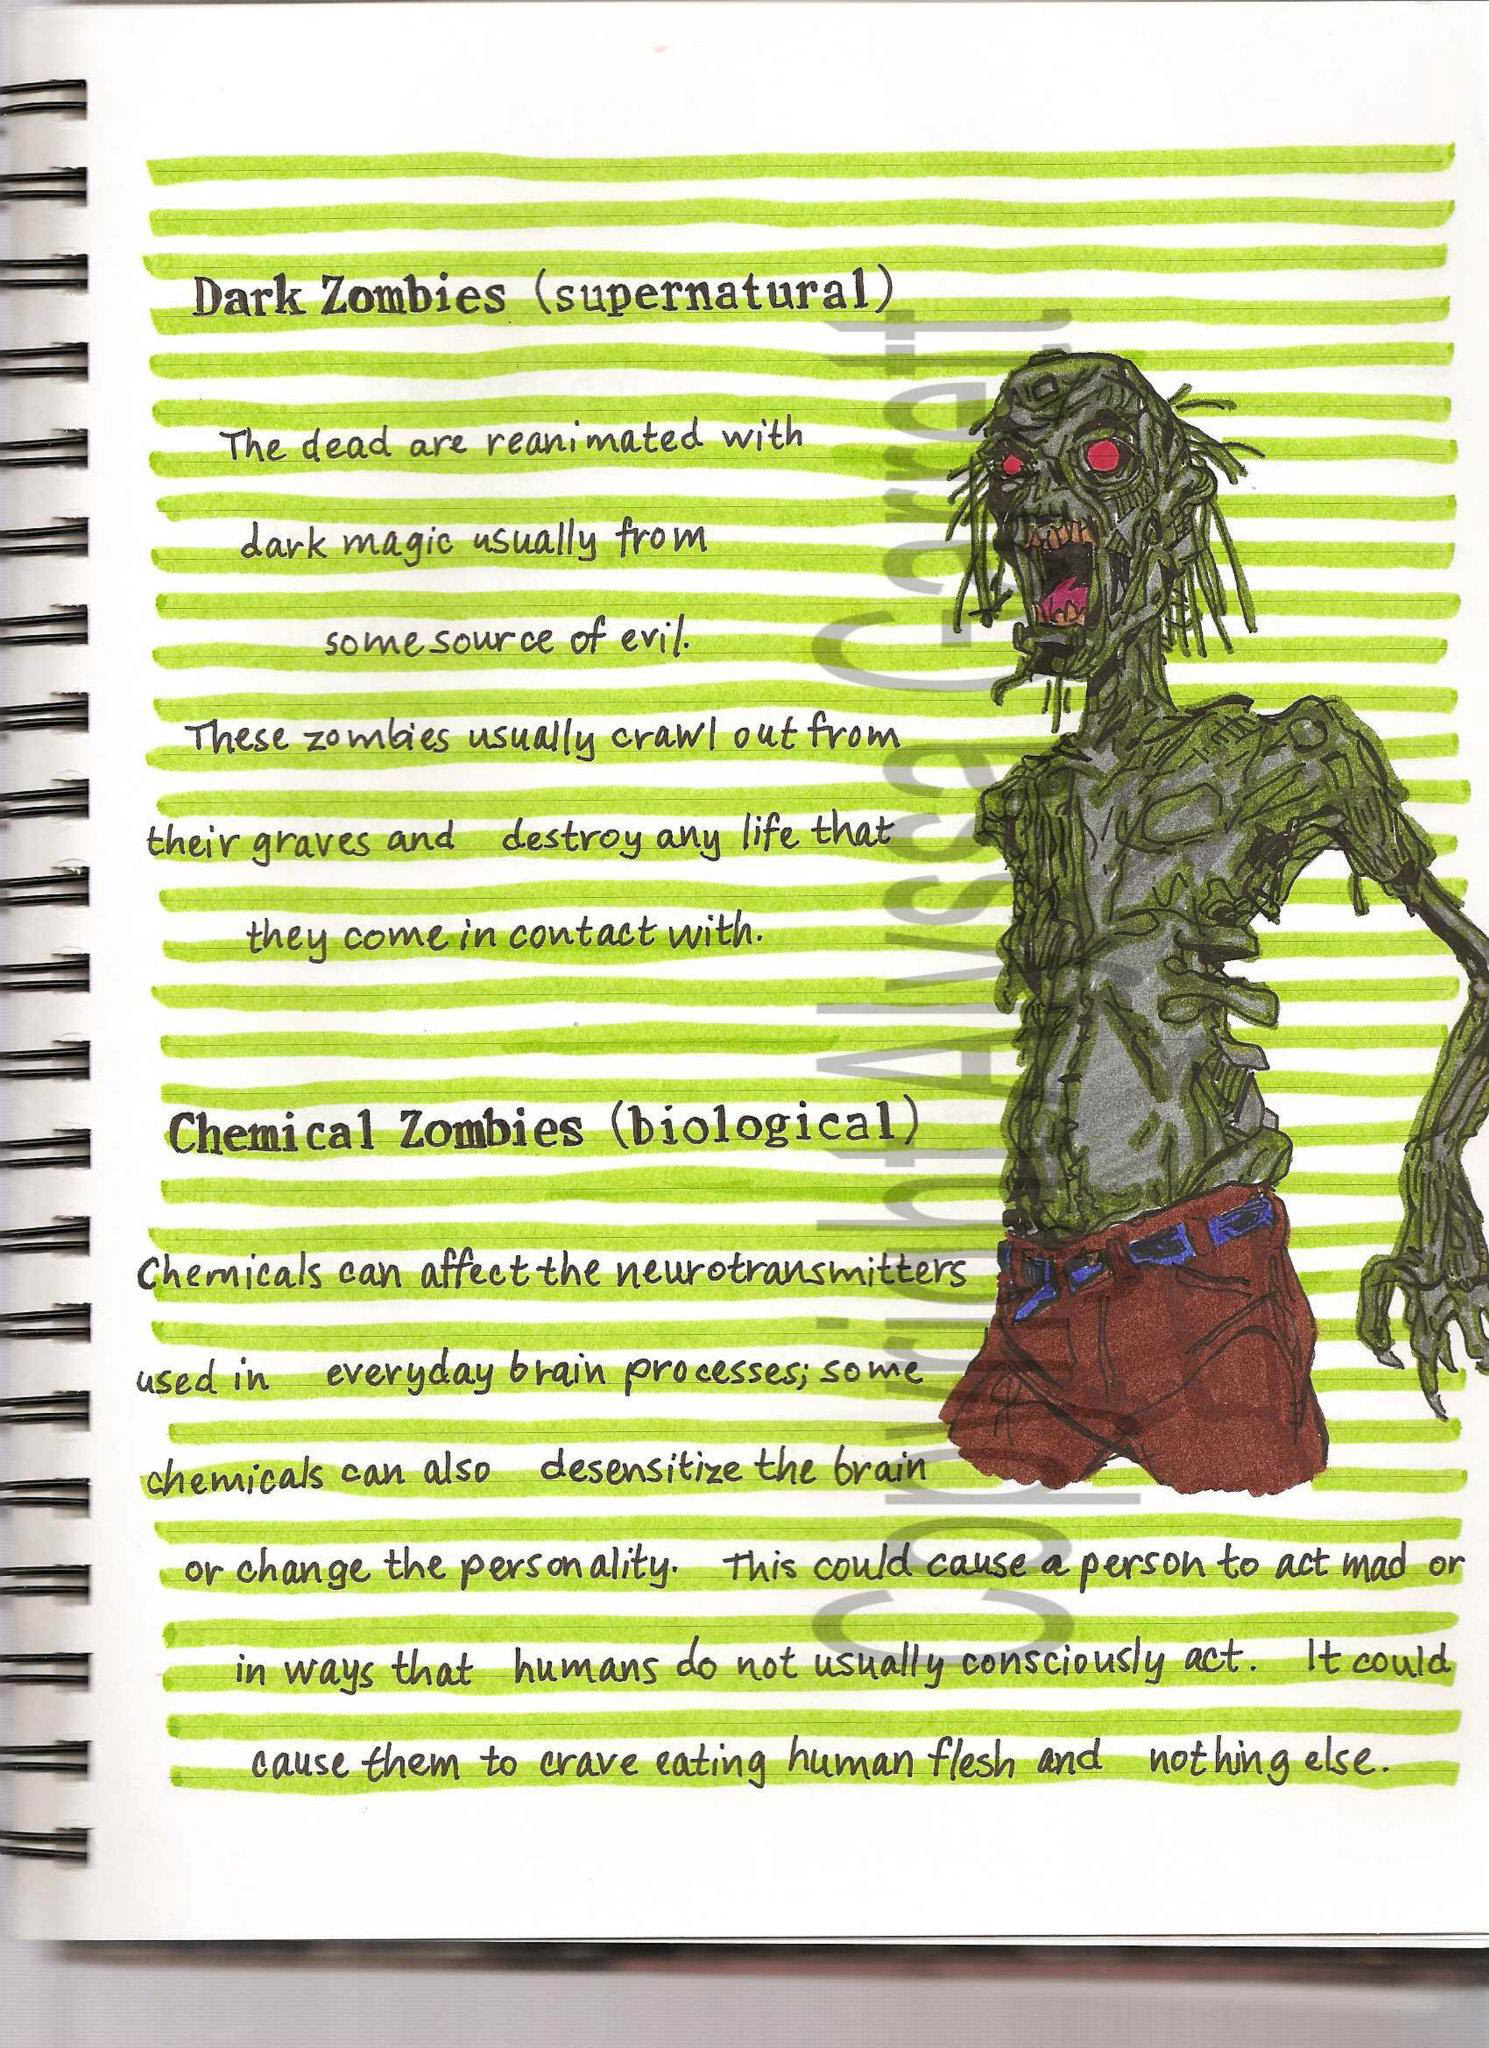 Dark Zombies (supernatural)
The dead are reanimated with
dark magic usually from
some source of evil.
These zombies usually crawl out from
their graves and destroy any life that
they come in contact with.
Chemical Zombies (biological)
Chemicals can affect the neurotransmitters
used in everyday brain processes; some
chemicals can also desensitize the brain
or change the personality. This could cause a person to act mad or
in ways that humans do not usually consciously act. It could
cause them to crave eating human flesh and nothing else.
Copyright Alyssa Garrett